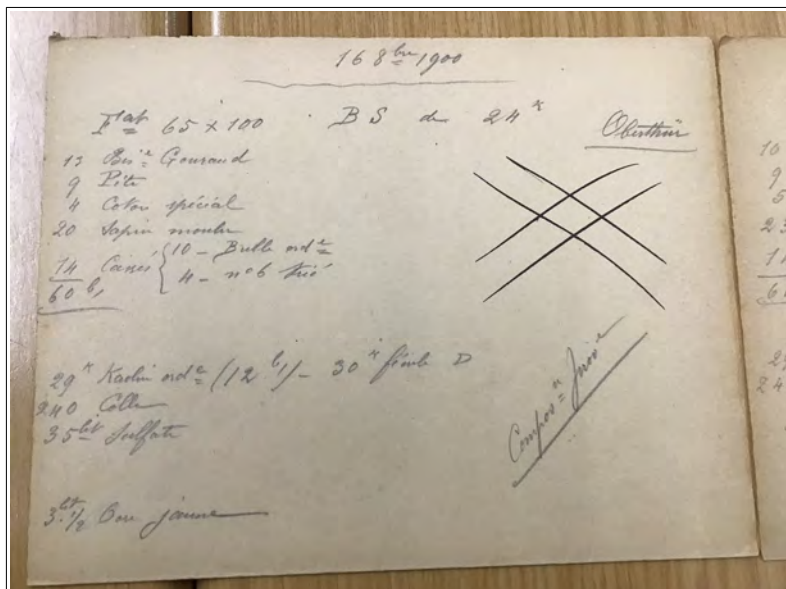 16 8bre 1900
Flat 65 x 100 BS de 24 k
Oberthür
13 Bisre Gouraud
9 Pite
4 Coton spécial
20 Sapin moulu
14 Cassés { 10 - Bulle ordre
4 - no 6 trié
60 
29 k Kaolin ordre (12 ) - 30 k fécule D
240 Colle
35 lit Sulfate
Composon
3 lit 1/2 jaune
10
9
5
23
1
6
2
24